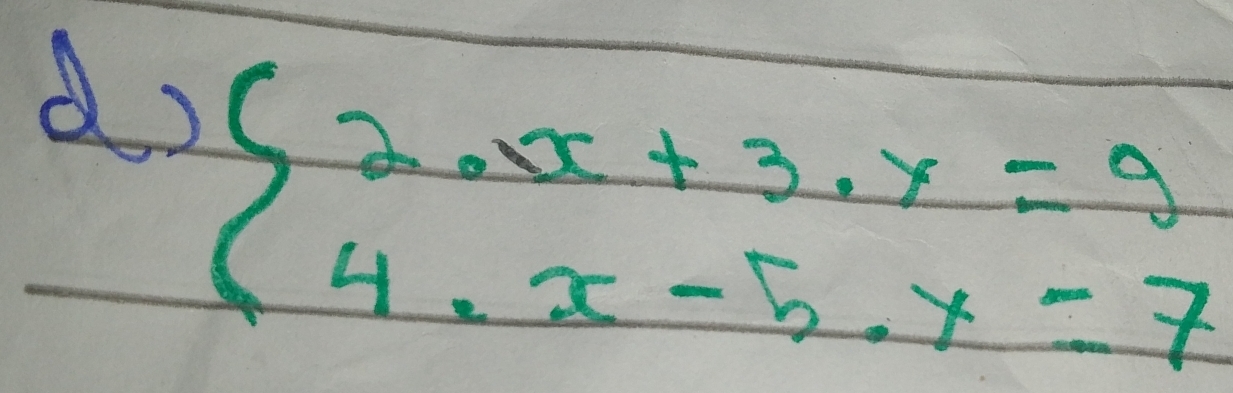 d) { 2 . x + 3 . y = 9
4 . x - 5 . y = 7